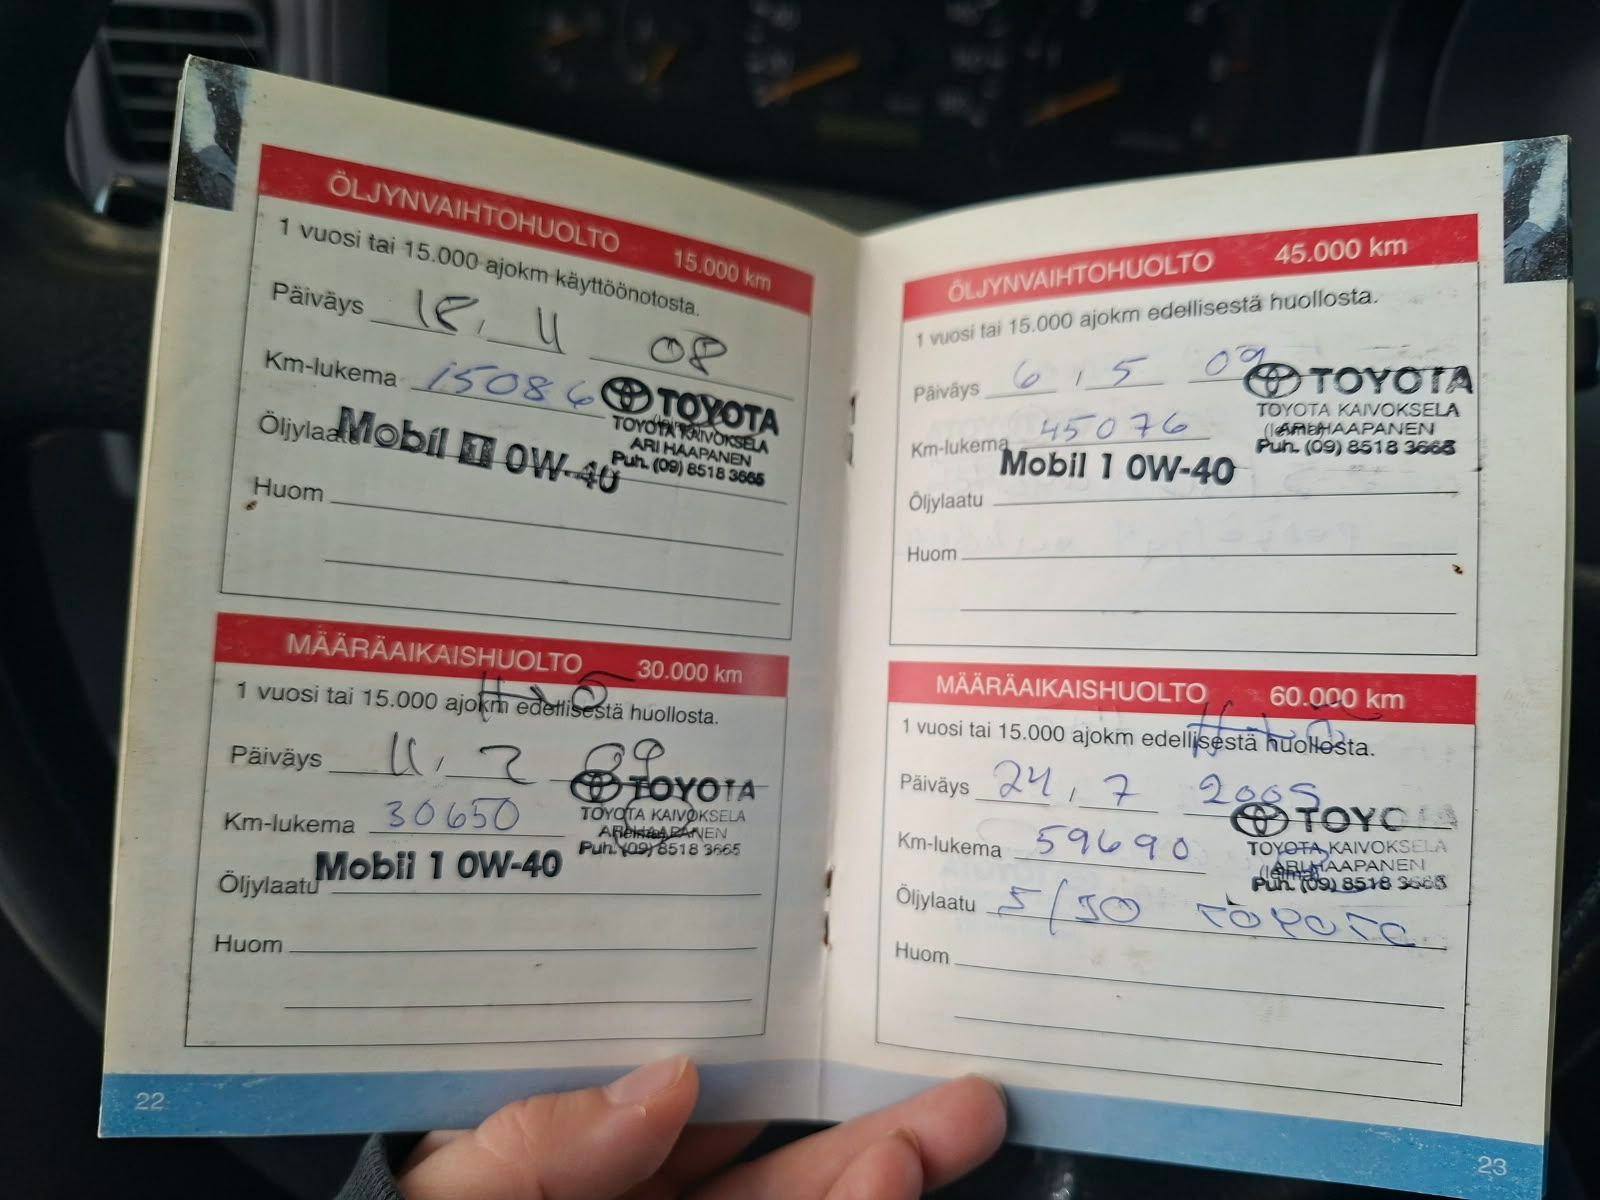 ÖLJYNVAIHTOHUOLTO 15.000 km
1 vuosi tai 15.000 ajokm käyttöönotosta.
Päiväys 18, 11 08
Km-lukema 15086
TOYOTA
TOYOTA KAIVOKSELA
ARI HAAPANEN
Puh. (09) 8518 3665
Öljylaatu Mobil 1 0W-40
Huom
MÄÄRÄAIKAISHUOLTO 30.000 km
1 vuosi tai 15.000 ajokm edellisestä huollosta.
Päiväys 11, 2 09
Km-lukema 30650
TOYOTA
TOYOTA KAIVOKSELA
ARI HAAPANEN
Puh. (09) 8518 3665
Mobil 1 0W-40
Öljylaatu
Huom
22
ÖLJYNVAIHTOHUOLTO 45.000 km
1 vuosi tai 15.000 ajokm edellisestä huollosta.
Päiväys 6, 5 09
Km-lukema 45076
TOYOTA
TOYOTA KAIVOKSELA
(leima) ARI HAAPANEN
Puh. (09) 8518 3665
Mobil 1 0W-40
Öljylaatu
Huom
MÄÄRÄAIKAISHUOLTO 60.000 km
1 vuosi tai 15.000 ajokm edellisestä huollosta.
Päiväys 24, 7 2009
Km-lukema 59690
TOYOTA
TOYOTA KAIVOKSELA
(leima) ARI HAAPANEN
Puh. (09) 8518 3665
Öljylaatu 5/30 TOYOTA
Huom
23